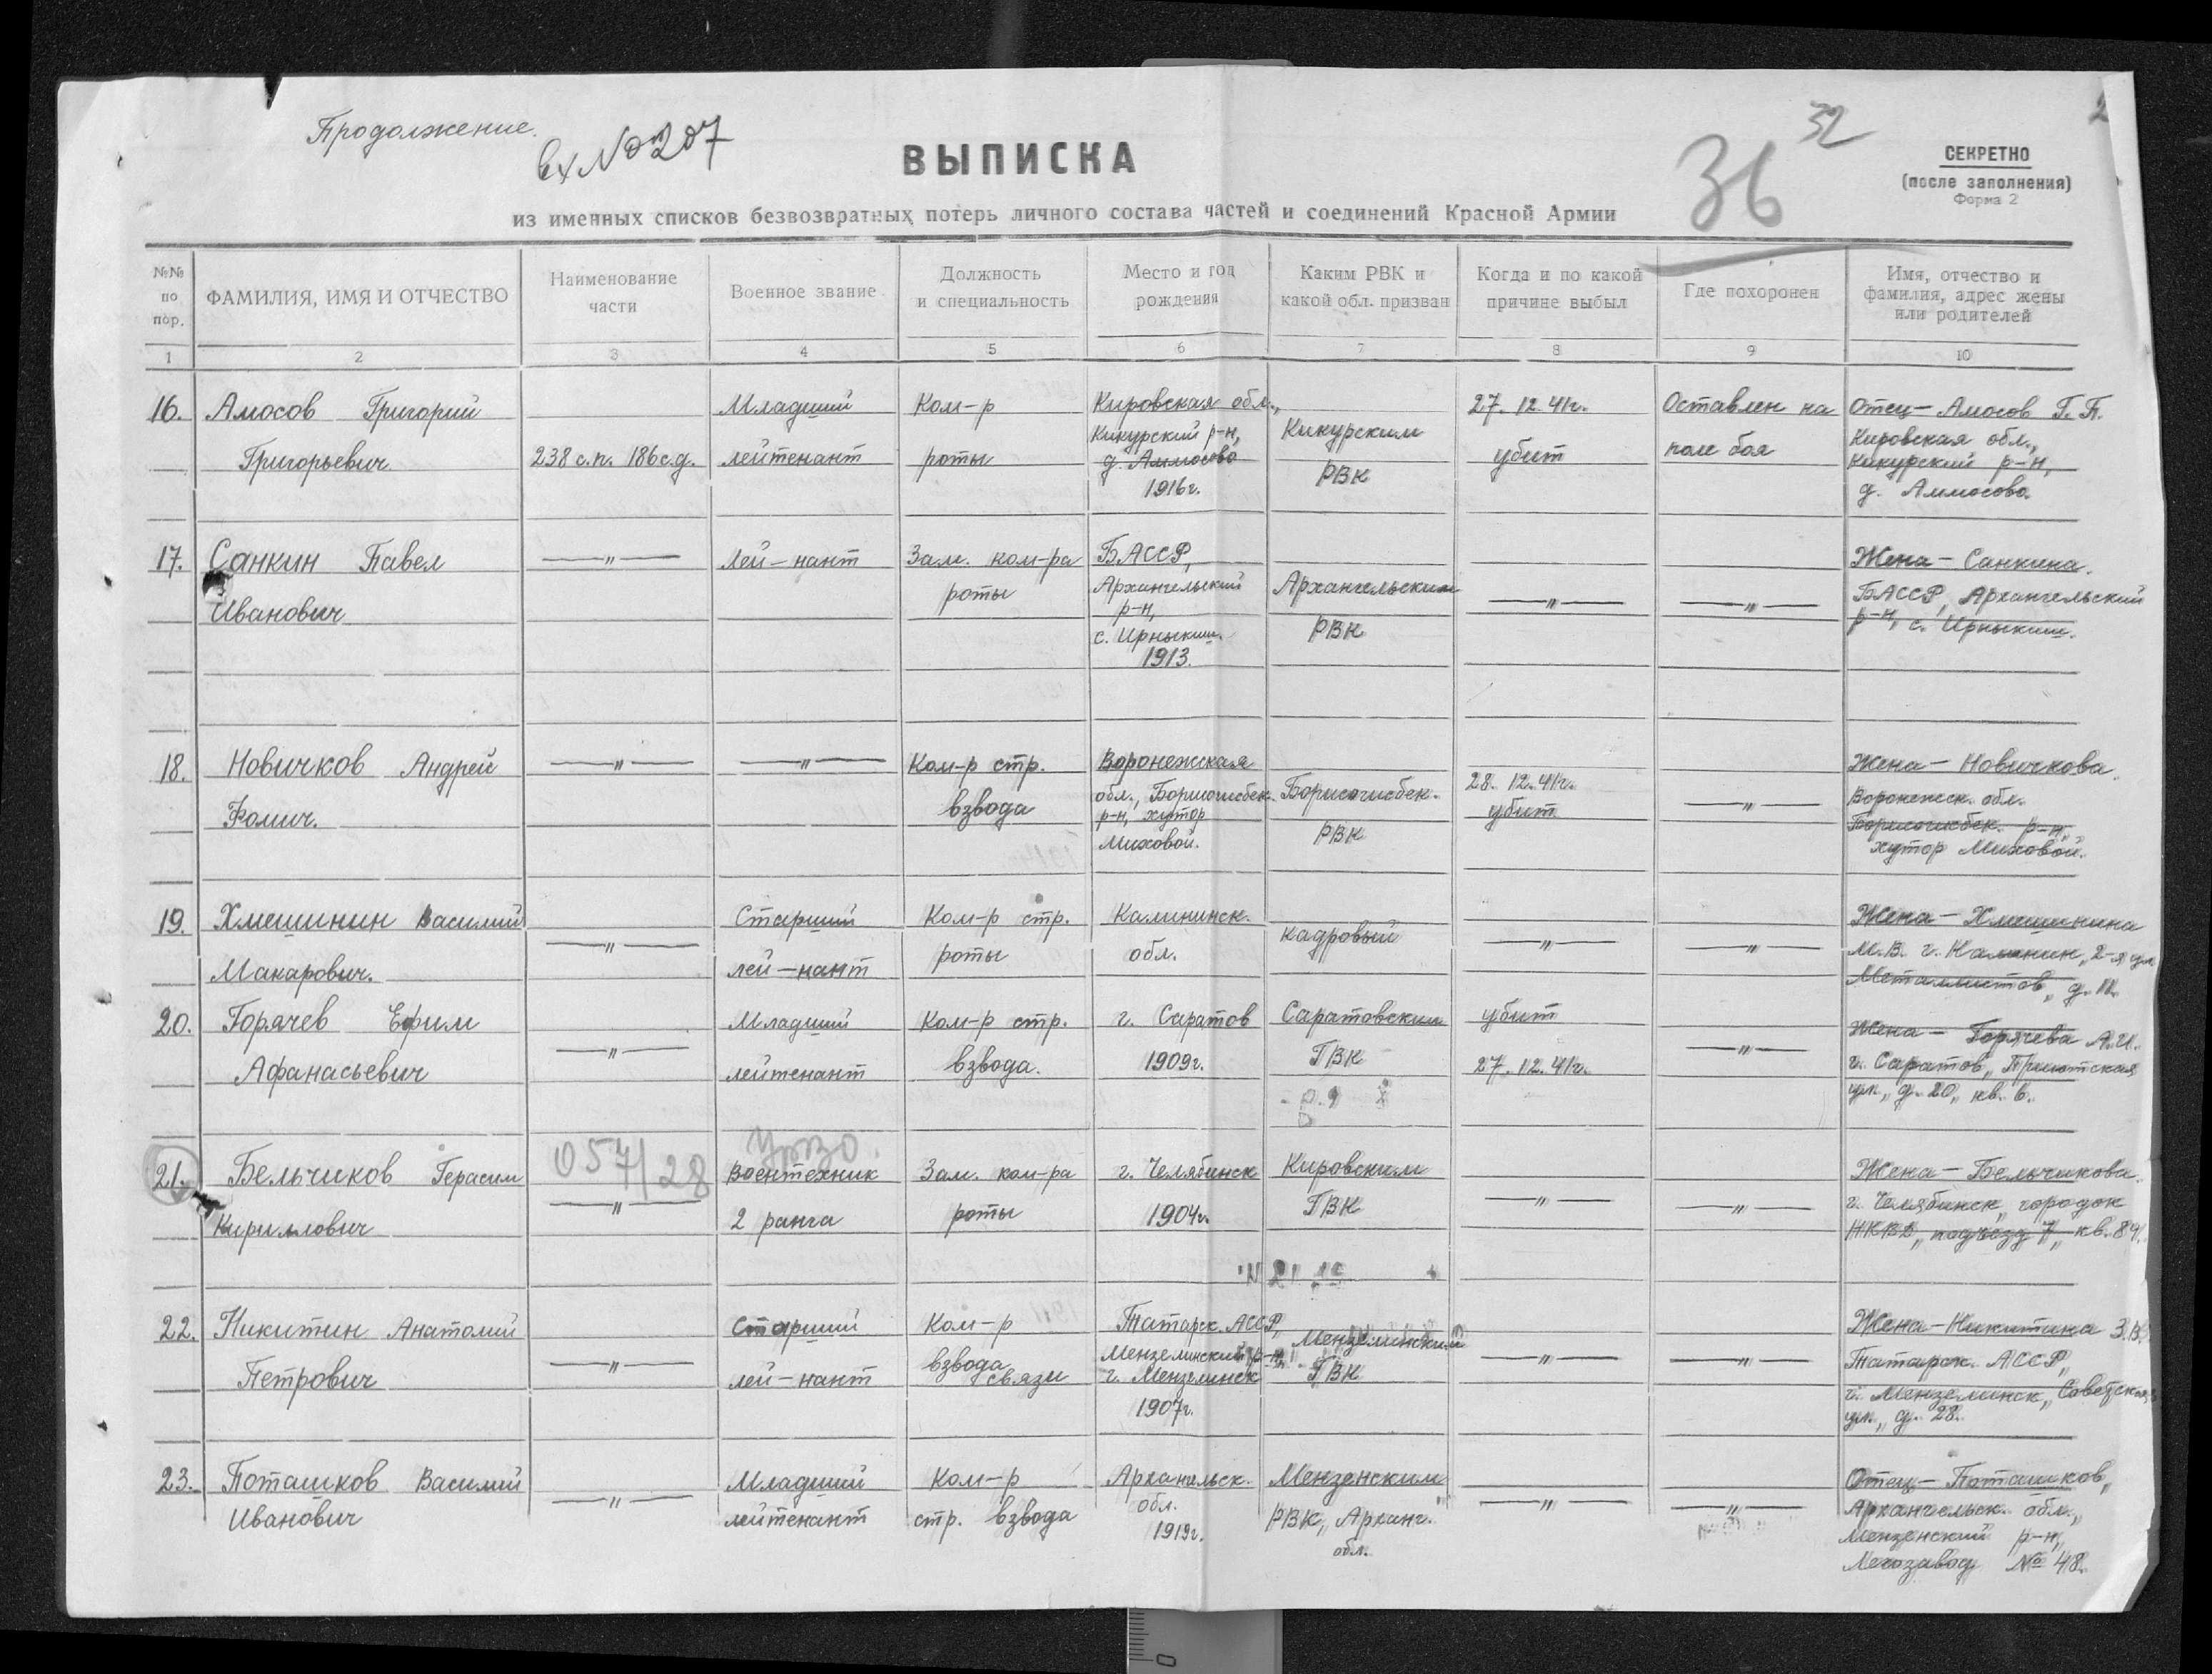 Продолжение.
вх №207
36
32
СЕКРЕТНО
(после заполнения)
Форма 2
ВЫПИСКА
из именных списков безвозвратных потерь личного состава частей и соединений Красной Армии
№№ по пор.
ФАМИЛИЯ, ИМЯ И ОТЧЕСТВО
Наименование части
Военное звание
Должность и специальность
Место и год рождения
Каким РВК и какой обл. призван
Когда и по какой причине выбыл
Где похоронен
Имя, отчество и фамилия, адрес жены или родителей
1 2 3 4 5 6 7 8 9 10
16.
Амосов Григорий
Григорьевич
238 с.п. 186 с.д.
Младший
лейтенант
Ком-р
роты
Кировская обл.,
Кикурский р-н,
д. Аммосово
1916г.
Кикурским
РВК
27. 12. 41г.
убит
Оставлен на
поле боя
Отец - Амосов Г. П.
Кировская обл.,
Кикурский р-н,
д. Аммосово.
17.
Санкин Павел
Иванович
—"—
Лей-нант
Зам. ком-ра
роты
БАССР,
Архангельский
р-н,
с. Ирныкши.
1913.
Архангельским
РВК
—"—
—"—
Жена - Санкина.
БАССР, Архангельский
р-н, с. Ирныкши.
18.
Новичков Андрей
Фомич.
—"—
—"—
Ком-р стр.
взвода
Воронежская
обл., Борисоглебск.
р-н, хутор
Миховой.
Борисоглебск.
РВК
28. 12. 41г.
убит
—"—
Жена - Новичкова.
Воронежск. обл.
Борисоглебск. р-н.
хутор Миховой.
19.
Хмешинин Василий
Макарович.
—"—
Старший
лей-нант
Ком-р стр.
роты
Калининск.
обл.
кадровый
—"—
—"—
Жена - Хмешинина
М.В. г. Калинин, 2-я ул.
Металлистов, д. 11.
20.
Горячев Ефим
Афанасьевич
—"—
Младший
лейтенант
Ком-р стр.
взвода.
г. Саратов
1909г.
Саратовским
ГВК
убит
27. 12. 41г.
—"—
Жена - Горячева А.И.
г. Саратов, Приютская
ул., д. 20, кв. 6.
21.
Бельчиков Герасим
Кириллович
057/28
—"—
Воентехник
2 ранга
Зам. ком-ра
роты
г. Челябинск
1904г.
Кировским
ГВК
—"—
—"—
Жена - Бельчикова.
г. Челябинск, городок
НКВД, подъезд 7, кв. 84.
22.
Никитин Анатолий
Петрович
—"—
Старший
лей-нант
Ком-р
взвода
связи
Татарск. АССР,
Мензелинский р-н,
г. Мензелинск
1907г.
Мензелинский
ГВК
—"—
—"—
Жена - Никитина З.В.
Татарск. АССР,
г. Мензелинск, Советская
ул., д. 28.
23.
Поташков Василий
Иванович
—"—
Младший
лейтенант
Ком-р
стр. взвода
Архангельск.
обл.
1919г.
Мензенским
РВК, Арханг.
обл.
—"—
—"—
Отец - Поташков,
Архангельск. обл.,
Мензенский р-н,
Лесозавод № 48.